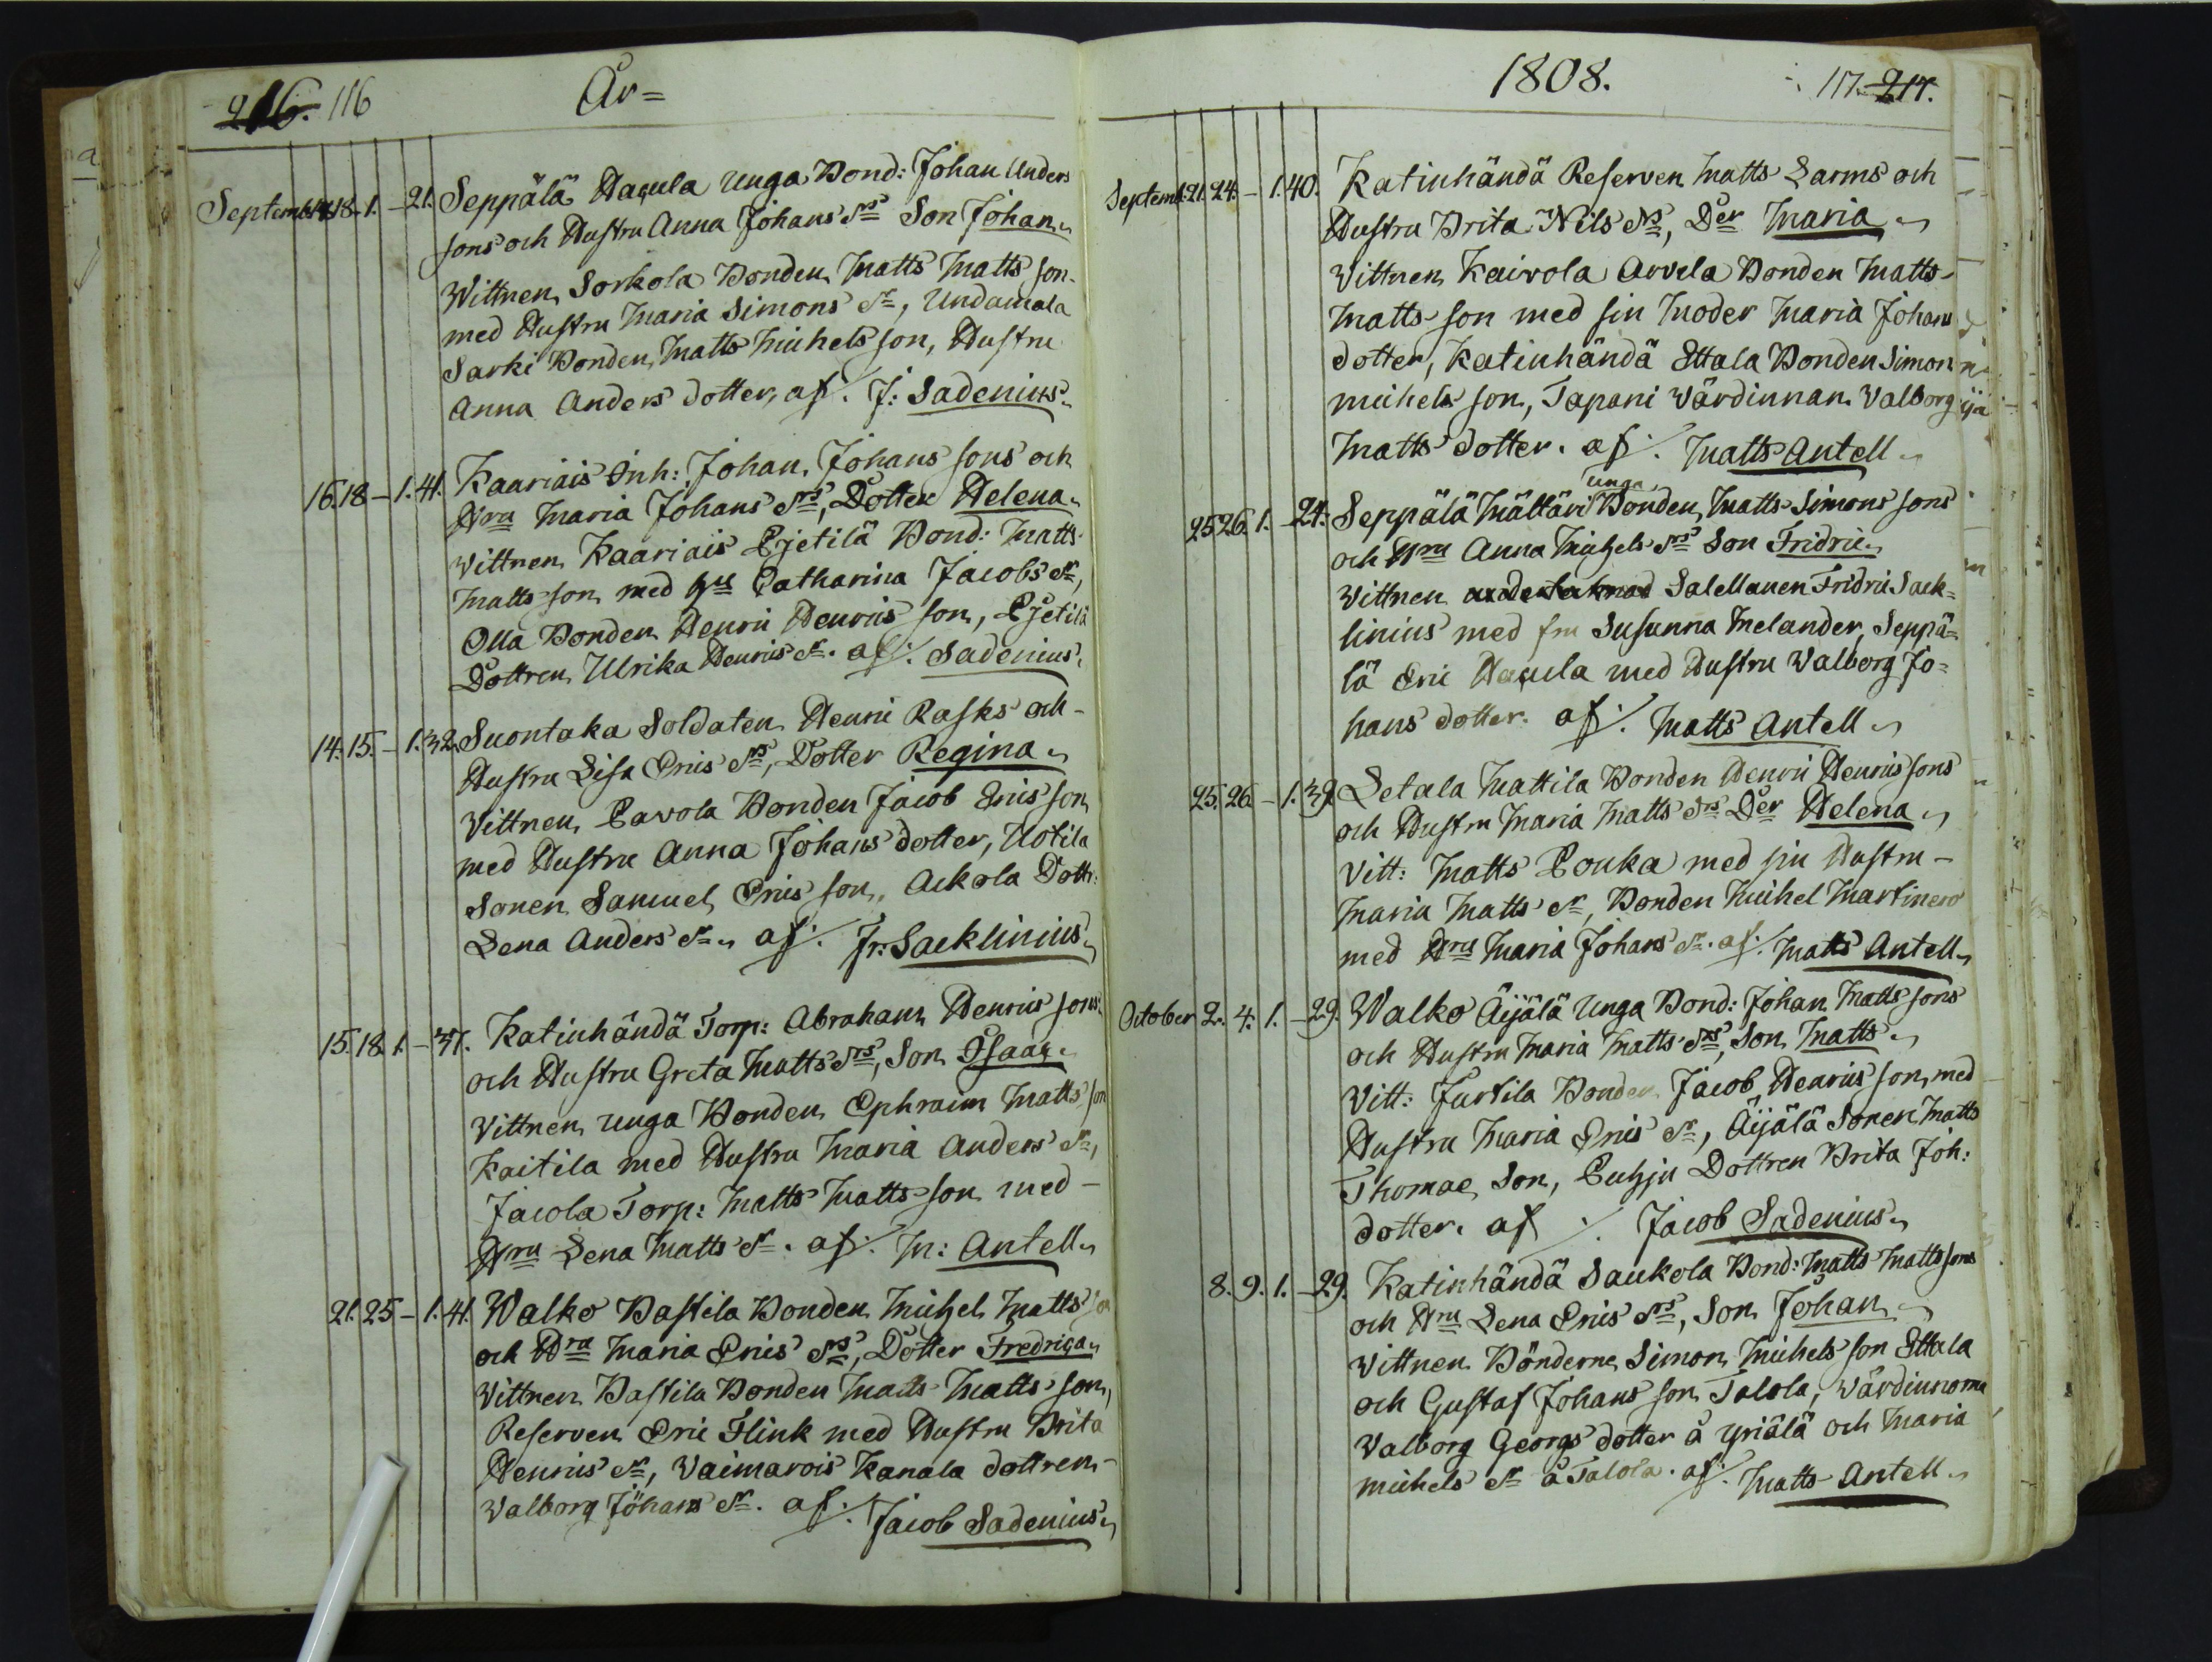 216. 116 År=
September 14. 18. 1. - 21. Seppälä Haqula unga Bond: Johan Anders
sons och Hustru Anna Johans drs Son Johan.
Wittnen, Sorkola Bonden Matts Matts son
med Hustru Maria Simons dr, Undamala
Sarki Bonden, Matts Michels son, Hustru
Anna Anders dotter, af: J: Sadenius.
16. 18 - 1. 41. Kaariais Inh: Johan, Johans sons och
Hru Maria Johans drs, Dotter Helena.
Vittnen Kaariais Pjetilä Bond: Matts
Matts son med hu Catharina Jacobs dr,
Olla Bonden Henric Henrics son, Pjetilä
Dottren Ulrika Henrics dr. af: Sadenius.
14. 15. - 1. 32. Suontaka Soldaten Henric Rasks och
Hustru Lisa Erics drs, Dotter Regina
Vittnen, Pavola Bonden Jacob Erics son
med Hustru Anna Johans dotter, Uotila
Sonen Samuel Erics son, Ackola Dottr:
Lena Anders dr. af: Fr: Sacklinius.
15. 18. 1. - 37. Katinhändä Torp: Abraham Henrics sons
och Hustru Greta Matts drs, Son Isaac.
Vittnen, unga Bonden, Ephraim Matts son
Kaitila med Hustru Maria Anders dr,
Jacola Torp: Matts Matts son med
Hru Lena Matts dr. af: M: Antell
21. 25 - 1. 41. Walko Bastila Bonden Michel Matts son
och Hru Maria Erics drs, Dotter Fredrica
Vittnen Bastila Bonden Matts Matts son,
Reserven Eric Flink med Hustru Brita
Henrics dr, Vaimarois Kanala dottren
Valborg Johans dr. af: Jacob Sadenius
1808. 117. 217.
Septemb: 21. 24. - 1. 40. Katinhändä Reserven Matts Larms och
Hustru Brita Nils drs, Der Maria
Vittnen Kaivola Arvela Bonden Matts
Matts son med sin Moder Maria Johans
dotter, Katinhändä Ettala Bonden Simon
michels son, Tapani Wärdinnan Valborg
Matts dotter. af: Matts Antell
unga
25 26. 1. - 24. Seppälä Mältäri Bonden, Matts Simons sons
och Hru Anna Michels drs Son Fridric
Vittnen Salellanen Fridric Sack=
linius med fru Susanna Melander, Seppä=
lä Eric Haqula med Hustru Walborg Jo=
hans dotter. af: Matts Antell
25. 26. - 1. 39. Letala Mattila Bonden Henric Henrics sons
och Hustru Maria Matts drs Der Helena
Vitt: Matts Pouka med sin Hustru
Maria Matts dr, Bonden Michel Martinero
med Hru Maria Johans dr. af: Matts Antell
October 2. 4. 1. - 29. Walko Äijälä unga Bond: Johan Matts sons
och Hustru Maria Matts drs, Son, Matts
Vitt: Jurtila Bonden Jacob Henrics son, med
Hustru Maria Erics dr, Äijälä Sonen Matts
Thomae Son, Puhju Dottren Brita Joh:
dotter. af: Jacob Sadenius
8. 9. 1. - 29. Katinhändä Saukola Bond: Matts Matts sons
och Hru Lena Erics drs, Son Johan
Vittnen Bönderne Simon Michels son Ettala
och Gustaf Johans son Talola, Wärdinnorna
Valborg Georgs dotter å yriälä och Maria
michels dr å Talola. af: Matts Antell